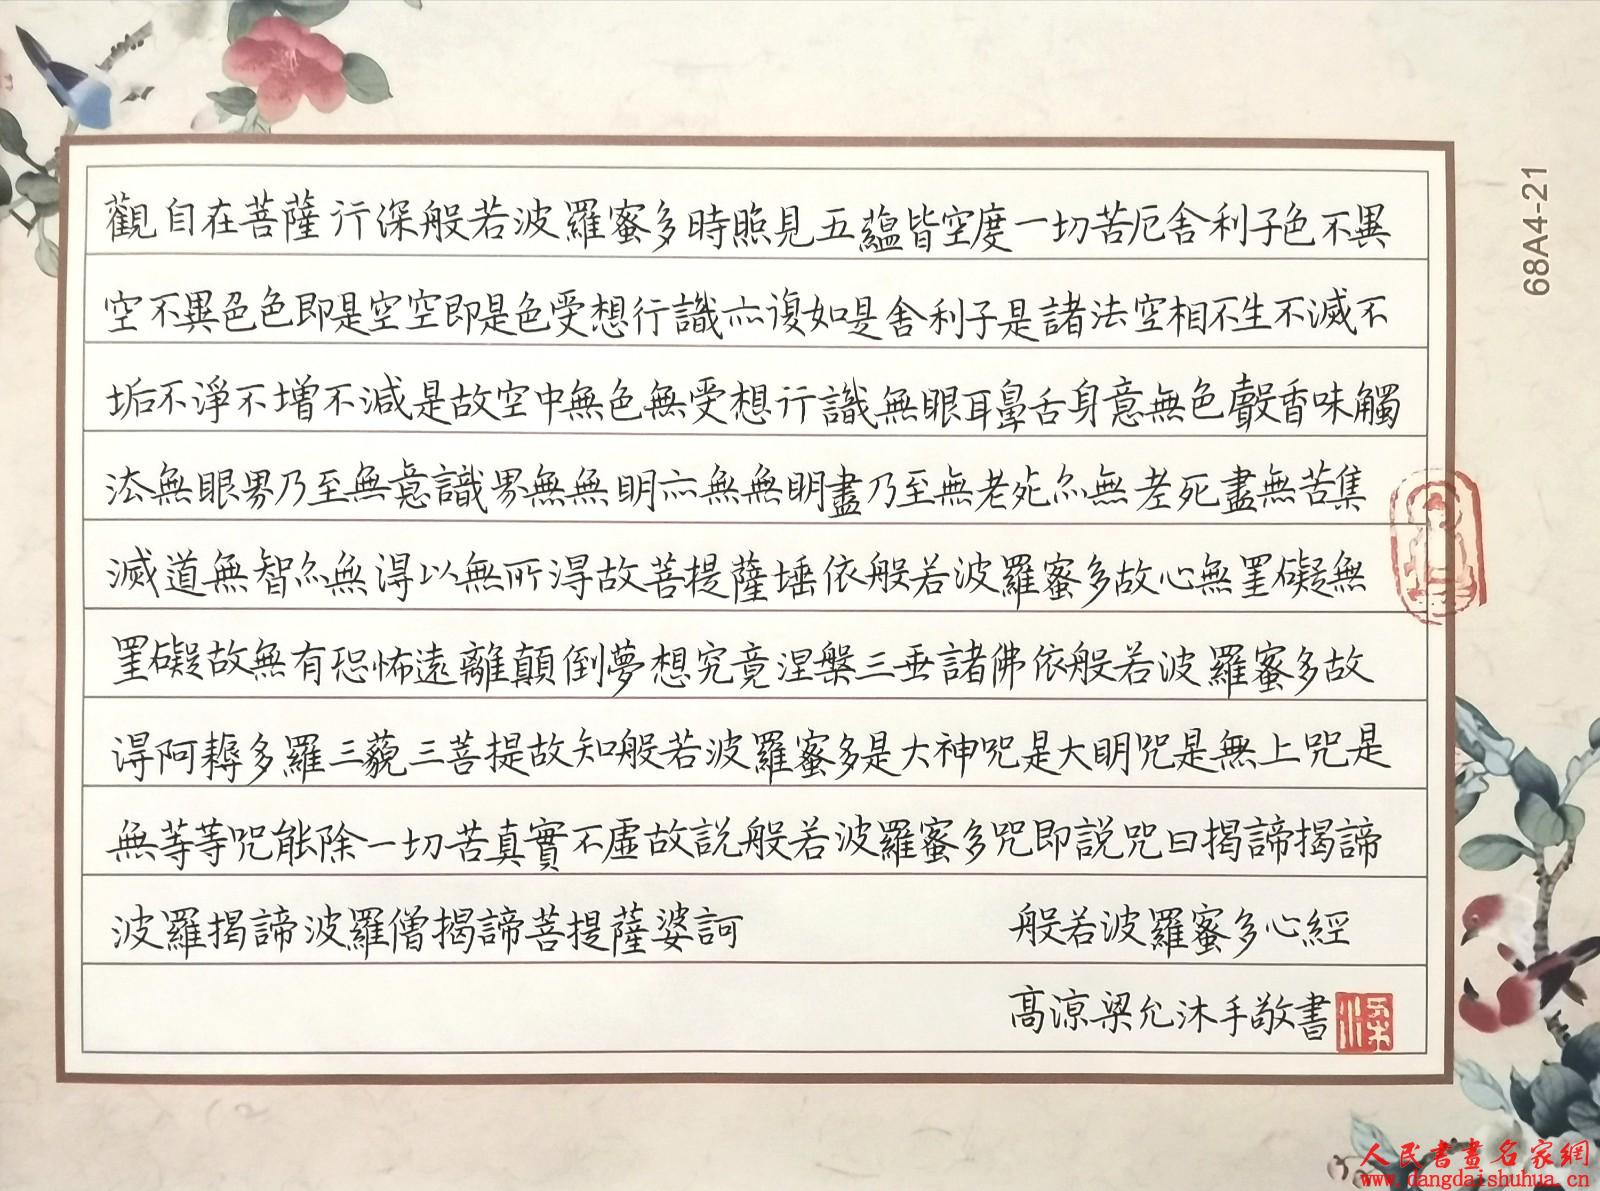 觀自在菩薩行深般若波羅蜜多時照見五蘊皆空度一切苦厄舍利子色不異
空不異色色即是空空即是色受想行識亦復如是舍利子是諸法空相不生不滅不
垢不淨不增不減是故空中無色無受想行識無眼耳鼻舌身意無色聲香味觸
法無眼界乃至無意識界無無明亦無無明盡乃至無老死亦無老死盡無苦集
滅道無智亦無得以無所得故菩提薩埵依般若波羅蜜多故心無罣礙無
罣礙故無有恐怖遠離顛倒夢想究竟涅槃三世諸佛依般若波羅蜜多故
得阿耨多羅三藐三菩提故知般若波羅蜜多是大神咒是大明咒是無上咒是
無等等咒能除一切苦真實不虛故說般若波羅蜜多咒即說咒曰揭諦揭諦
波羅揭諦波羅僧揭諦菩提薩婆訶 般若波羅蜜多心經
高涼梁允沐手敬書
68A4-21
人民書畫名家網
www.dangdaishuhua.cn